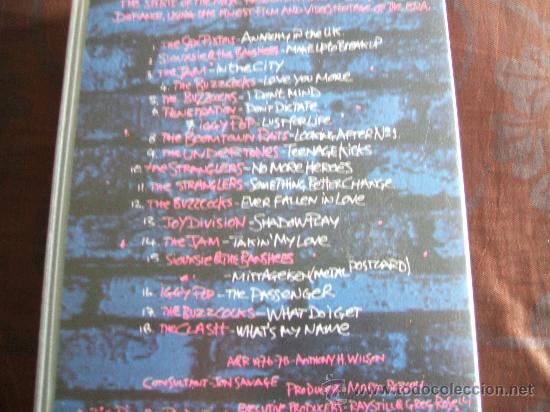 THE SPIRIT OF THE
DEFIANCE, USING THE FINEST FILM AND VIDEO FOOTAGE OF THE ERA.
1. THE SEX PISTOLS - ANARCHY IN THE UK
2. SIOUXSIE & THE BANSHEES - MAKE UP TO BREAK UP
3. THE JAM - IN THE CITY
4. THE BUZZCOCKS - LOVE YOU MORE
5. THE BUZZCOCKS - I DON'T MIND
6. PENETRATION - DON'T DICTATE
7. IGGY POP - LUST FOR LIFE
8. THE BOOMTOWN RATS - LOOKING AFTER No 1
9. THE UNDERTONES - TEENAGE KICKS
10. THE STRANGLERS - NO MORE HEROES
11. THE STRANGLERS - SOMETHING BETTER CHANGE
12. THE BUZZCOCKS - EVER FALLEN IN LOVE
13. JOY DIVISION - SHADOWPLAY
14. THE JAM - TAKIN' MY LOVE
15 SIOUXSIE & THE BANSHEES
- MITTAGEISEN (METAL POSTCARD)
16. IGGY POP - THE PASSENGER
17. THE BUZZCOCKS - WHAT DO I GET
18. THE CLASH - WHAT'S MY NAME
A&R 1976-78 - ANTHONY H. WILSON
CONSULTANT - JON SAVAGE PRODUCER - MARTY
EXECUTIVE PRODUCERS - RAY STILL & GREG
todocoleccion.net